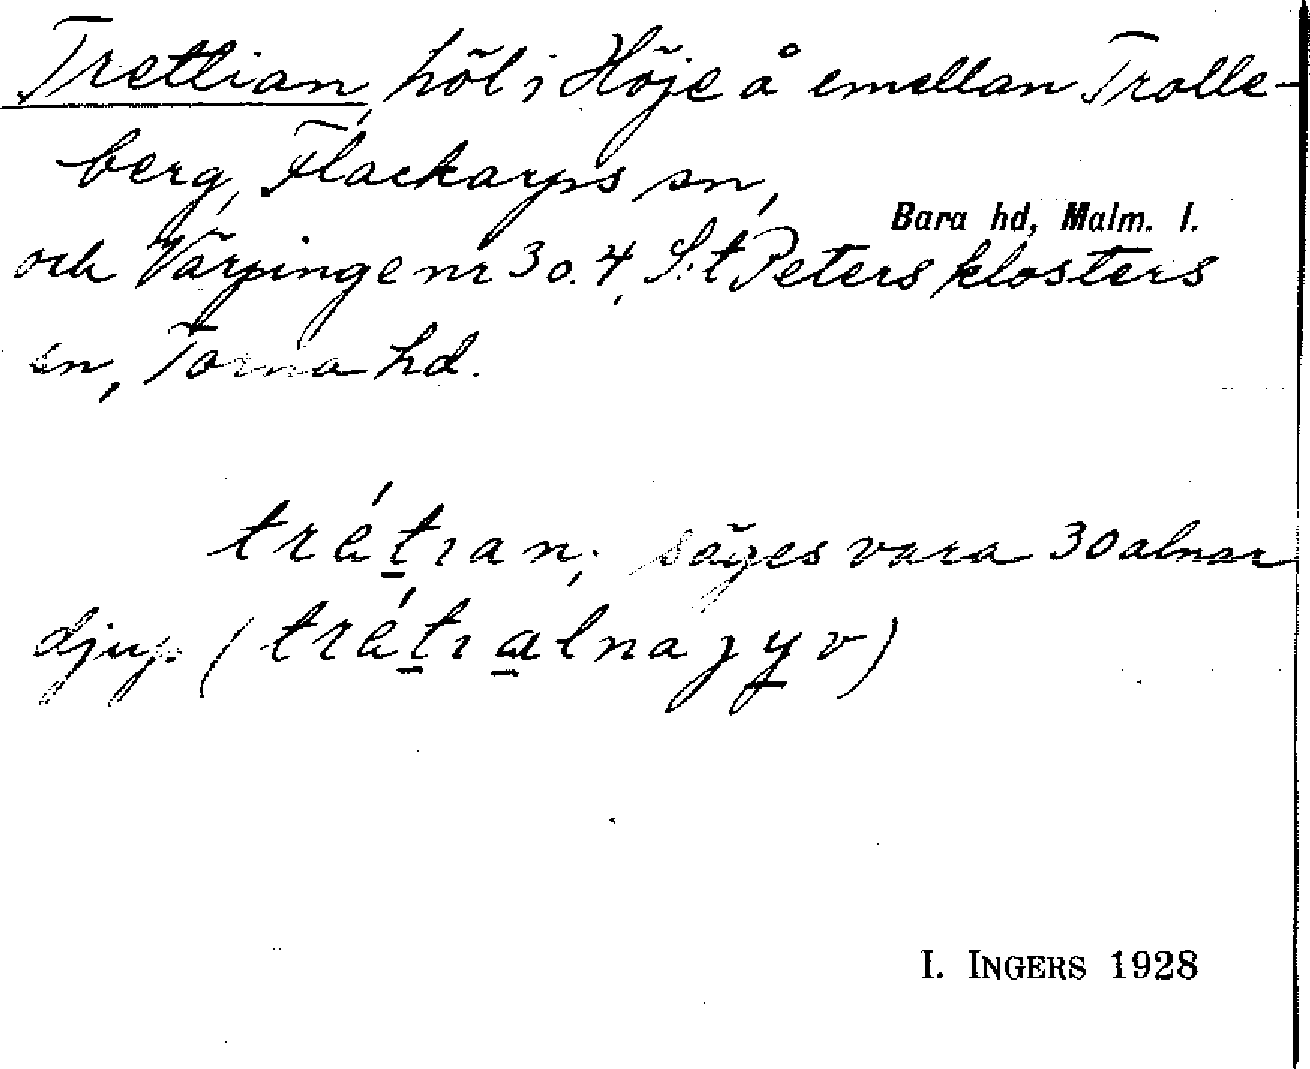 Trettian, höl i Höje å emellan Trolle-
berg, Flackarps sn,
Bara hd, Malm. l.
och Värpinge nr 3 o. 4, S:t Peters klosters
sn, Torna hd.
trétıan; säges vara 30 alnar
djup. (trétı alna jyv)
I. INGERS 1928